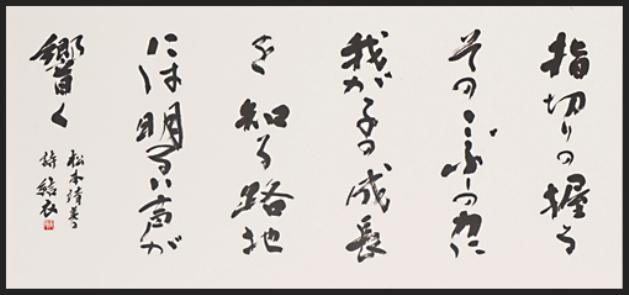 指切りの握る
そのこぶしの力に
我が子の成長
を知る路地
には明るい声が
響く
松本諱美の
詩 結衣